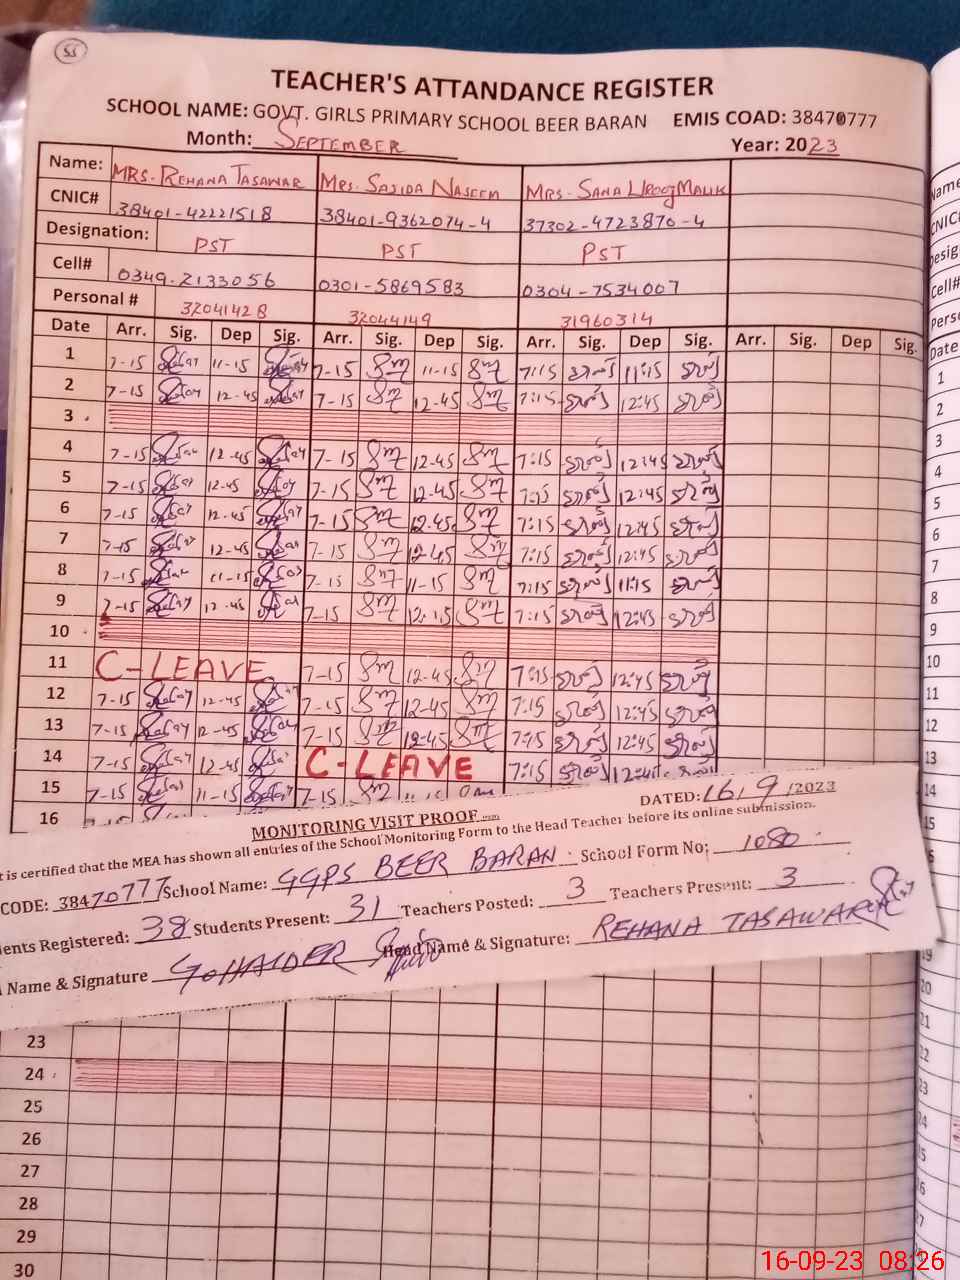 55
TEACHER'S ATTANDANCE REGISTER
SCHOOL NAME: GOVT. GIRLS PRIMARY SCHOOL BEER BARAN EMIS COAD: 38470777
Month: SEPTEMBER Year: 2023
Name: MRS. REHANA TASAWAR MRS. SAJIDA NASEEM MRS. SANA UROOJ MALIK
CNIC# 38401-42221518 38401-9362074-4 37302-4723870-4
Designation: PST PST PST
Cell# 0349-2133056 0301-5869583 0304-7534007
Personal # 32041428 32044149 31960314
Date Arr. Sig. Dep Sig. Arr. Sig. Dep Sig. Arr. Sig. Dep Sig. Arr. Sig. Dep Sig.
1 7-15 11-15 7-15 11-15 7:15 11:15
2 7-15 12-45 7-15 12-45 7:15 12:45
3
4 7-15 12-45 7-15 12-45 7:15 12:45
5 7-15 12-45 7-15 12-45 7:15 12:45
6 7-15 12-45 7-15 12-45 7:15 12:45
7 7-15 12-45 7-15 12-45 7:15 12:45
8 7-15 11-15 7-15 11-15 7:15 11:15
9 7-15 12-45 7-15 7:15 12:45
10
11 C-LEAVE 7-15 12-45 7:15 12:45
12 7-15 12-45 7-15 12-45 7:15 12:45
13 7-15 12-45 7-15 12-45 7:15 12:45
14 7-15 12-45 C-LEAVE 7:15 12:45
15 7-15 11-15 7-15
16
MONITORING VISIT PROOF DATED: 16/9/2023
is certified that the MEA has shown all entries of the School Monitoring Form to the Head Teacher before its online submission.
CODE: 38470777 School Name: GGPS BEER BARAN School Form No: 1080
ents Registered: 38 Students Present: 31 Teachers Posted: 3 Teachers Present: 3
Name & Signature Head Name & Signature: REHANA TASAWAR
23
24
25
26
27
28
29
30
Name
CNIC
Desig
Cell#
Perso
Date
1
2
3
4
5
6
7
8
9
10
11
12
13
14
15
16-09-23 08:26